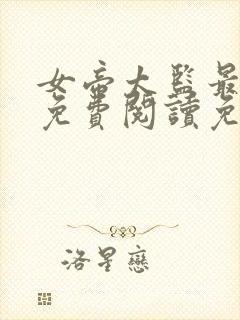 女帝大監最
免費閱讀免
洛星戀